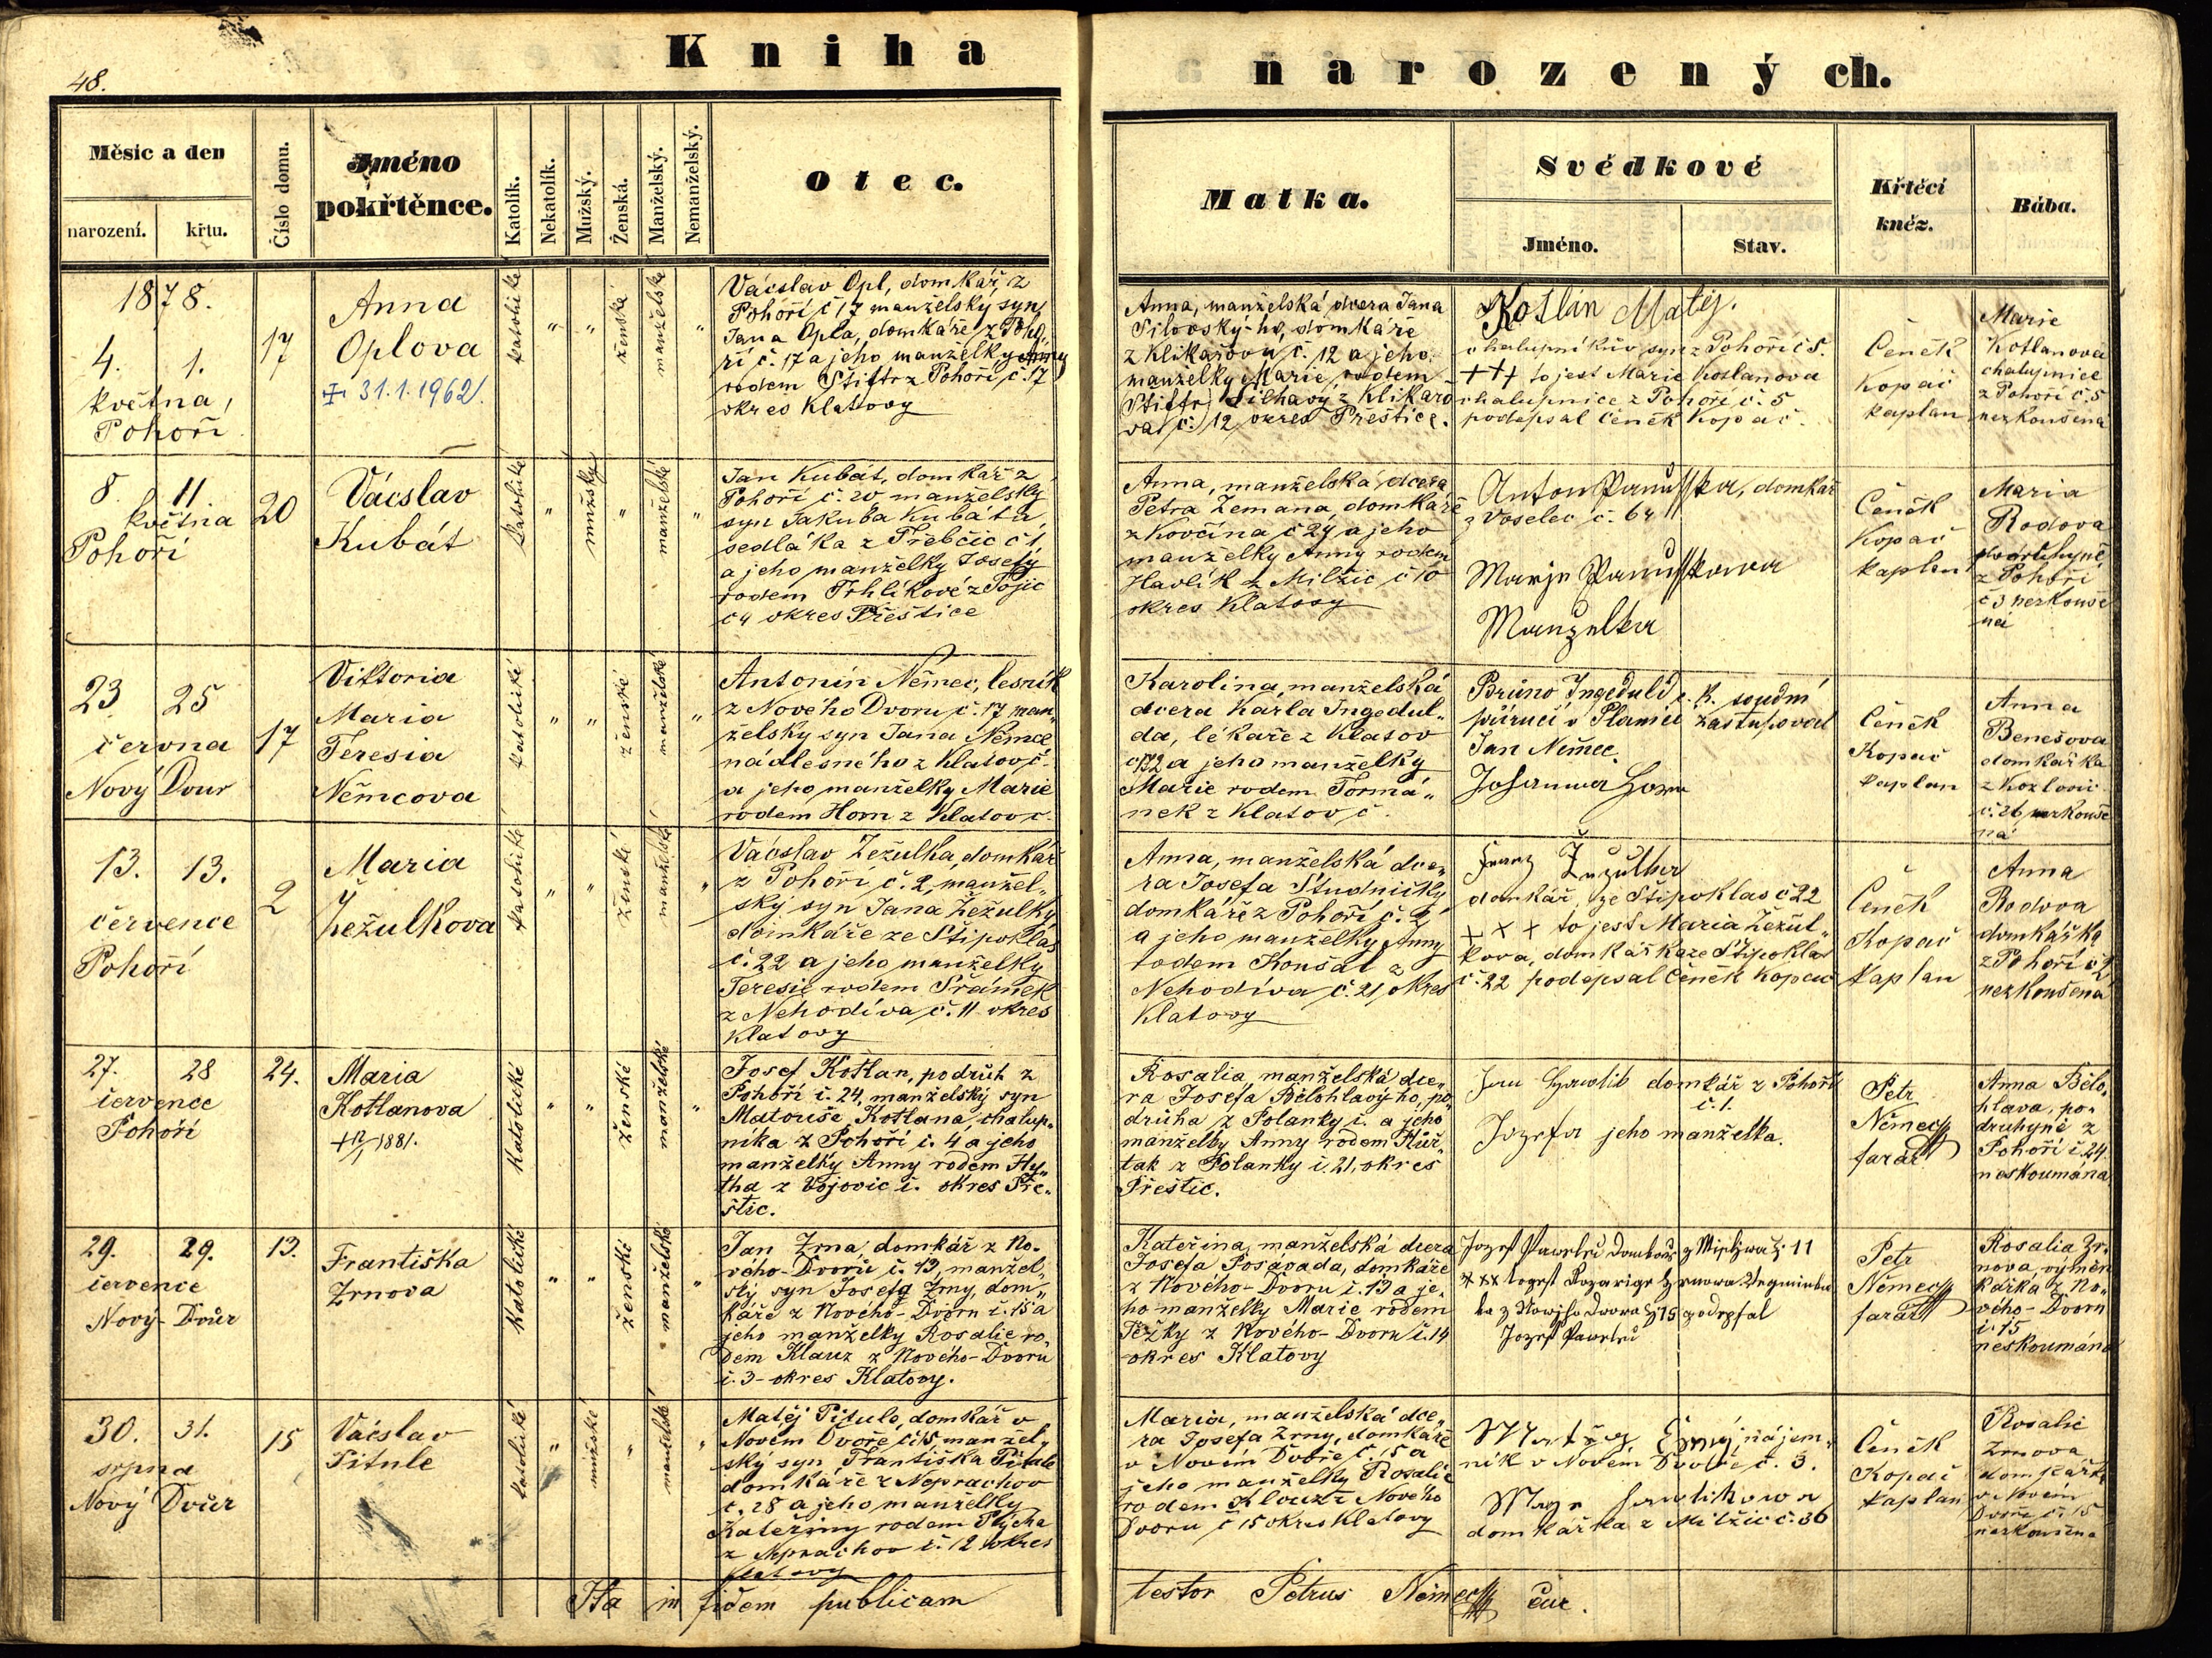 48.
Kniha narozených.
Měsíc a den
narození.
křtu.
Číslo domu.
Jméno
pokřtěnce.
Katolík.
Nekatolík.
Mužský.
Ženská.
Manželský.
Nemanželský.
Otec.
Matka.
Svědkové
Jméno.
Stav.
Křtěcí
kněz.
Bába.
1878.
4. 1.
května,
Pohoři
17
Anna
Oplova
31.1.1962.
katolické
"
"
ženské
manželské
"
Vácslav Opl, domkář z
Pohoří č 17 manželský syn
Jana Opla, domkáře z Poho„
ří č. 17 a jeho manželky Anny
rodem Štiftr z Pohoří č. 17
okres Klatovy
Anna, manželská dcera Jana
domkáře
č. 12 a jeho
manželky Marie, rodem
č. 12 okres Přeštice.
Kotlán Matěj.
chalupníkův syn z Pohoří č 5.
+++ to jest Marie Kotlanova
chalupnice z Pohoří č. 5
podepsal Čeněk Kopač.
Čeněk
Kopač
kaplan
Marie
Kotlanova
chalupnice
z Pohoří č. 5
nezkoušená
8. 11.
května
Pohoří
20
Vácslav
Kubát
katolické
"
mužský
"
manželské
"
Jan Kubát, domkář z
Pohoří č. 20 manželský
syn Jakuba Kubáta
sedláka z Třebčic č 1
a jeho manželky Josefy
rodem Trhlíkové z
č 4 okres Přeštice
Anna, manželská dcera
Petra Zemana, domkáře
z Kovčína č 24 a jeho
manželky Anny rodem
Havlík z Milžic č 10
okres Klatovy
Anton Panusska, domkář
z Voselec č. 64
Marje Panusskowa
Manželka
Čeněk
Kopač
kaplan
Maria
Rodova
podruhyně
z Pohoří
č 3 nezkouše
ná
23 25
června
Nový Dvur
17
Viktoria
Maria
Teresia
Němcova
katolické
"
"
ženské
manželské
"
Antonín Němec, lesník
z Nového Dvoru č. 17 man„
želský syn Jana Němce
nádlesného z Klatov č.
a jeho manželky Marie
rodem Horn z Klatov č.
Karolina, manželská
dcera Karla Ingedul„
da, lékaře z Klatov
a jeho manželky
Marie rodem Formá„
nek z Klatov č.
Bruno Ingeduld c. k. soudní
v Planici zastupoval
Jan Němec.
Johanna Horn
Čeněk
Kopač
kaplan
Anna
Benešova
domkářka
z Kozlovic
č. 26 nezkouše
ná
13. 13.
července
Pohoří
2
Maria
Žežulkova
katolické
"
"
ženské
manželské
"
Vácslav Žežulka, domkář
z Pohoří č. 2, manžel„
ský syn Jana Žežulky
domkáře ze Štipoklas
č. 22 a jeho manželky
Teresie rodem Šrámek
z Nehodíva č. 11 okres
Klatovy
Anna, manželská dce„
ra Josefa Studničky
domkáře z Pohoří č. 2
a jeho manželky Anny
rodem Koušal z
Nehodíva č. 21 okres
Klatovy
Franz Žežulka
domkář, ze Štipoklas č 22
+ + + to jest Maria Žežul„
kova, domkářka ze Štipoklas
č. 22 podepsal Čeněk Kopač
Čeněk
Kopač
kaplan
Anna
Rodova
domkářka
z Pohoří č 2
nezkoušená
27. 28
července
Pohoří
24.
Maria
Kotlanova
1881.
katolické
"
"
ženské
manželské
"
Josef Kotlan, podruh z
Pohoří č. 24, manželský syn
Matouše Kotlana, chalup„
níka z Pohoří č. 4 a jeho
manželky Anny rodem Hy„
z Vojovic č. okres Pře„
štic.
Rosalia, manželská dce„
ra Josefa Bělohlavýho, po„
druha z Polanky č. a jeho
manželky Anny rodem
z Polanky č. 21, okres
Přeštic.
Jan Hawlik domkář z Pohoří
č. 1.
Jozefa jeho manželka.
Petr
Němec
farář
Anna Bělo„
hlava, po„
druhyně z
Pohoří č. 24.
neskoumána.
29. 29.
července
Nový-Dvůr
13.
Františka
Zrnova
katolické
"
"
ženské
manželské
"
Jan Zrna, domkář z No„
vého-Dvoru č. 13, manžel„
ský syn Josefa Zrny, dom„
káře z Nového-Dvoru č. 15 a
jeho manželky Rosalie ro„
dem Klauz z Nového-Dvoru
č. 3 - okres Klatovy.
Kateřina, manželská dcera
Josefa Posavada, domkáře
z Nového-Dvoru č. 13 a je„
ho manželky Marie rodem
Težky z Nového-Dvoru č. 14
okres Klatovy
11
+++ Rozarige
15 podepsal
Petr
Němec
farář
Rosalia Zr„
nova, výměn
kářka z No„
vého-Dvoru
č. 15
neskoumána
30. 31.
srpna
Nový Dvůr
15
Vácslav
Pitule
katolické
"
mužské
"
manželské
"
Matěj Pitule, domkář v
Novém Dvoře č 15 manžel„
ský syn Františka Pitule
domkáře z Neprachov
č. 28 a jeho manželky
Kateřiny rodem Plycha
z Neprachov č. 12 okres
Klatovy
Maria, manželská dce„
ra Josefa Zrny, domkáře
v Novém Dvoře č. 15 a
jeho manželky Rosalie
rodem Klouzr Nového
Dvoru č 15 okres Klatovy
nájem„
ník v Novém Dvoře č. 3.
Hawlikowa
domkářka z Milžic č. 36
Čeněk
Kopač
kaplan
Rosalie
Zrnova
domkářka
v Novém
Dvoře č. 15
nezkoušena
Ita in fidem publicam testor Petrus Němec Cur.